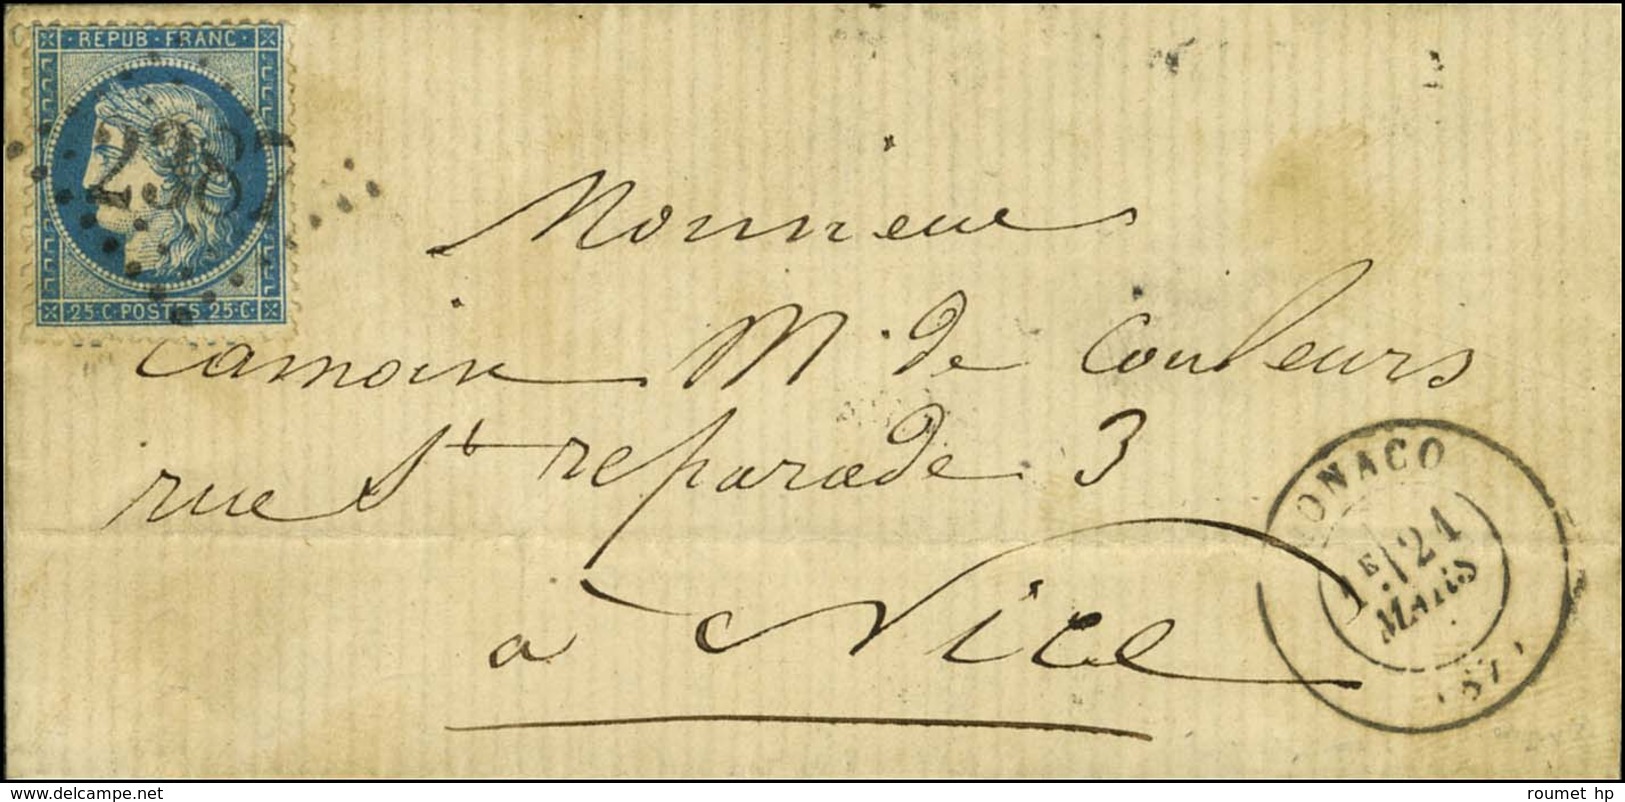 REPUB·FRANC·
2387
25·C·POSTES 25·C·
Monsieur
Camoin M. de Couleurs
rue St reparade 3
à Nice
MONACO
1E / 21
MARS
(87)
www.delcampe.net
roumet hp